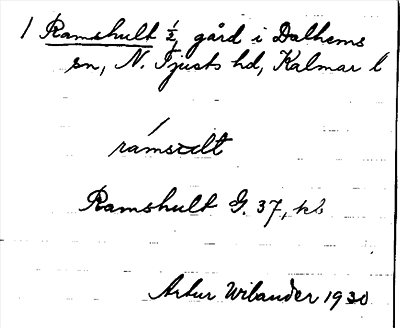 1 Ramshult ½, gård i Dalhems
sn, N. Tjusts hd, Kalmar l
ramsult
Ramshult G. 37, kb
Artur Wilander 1930